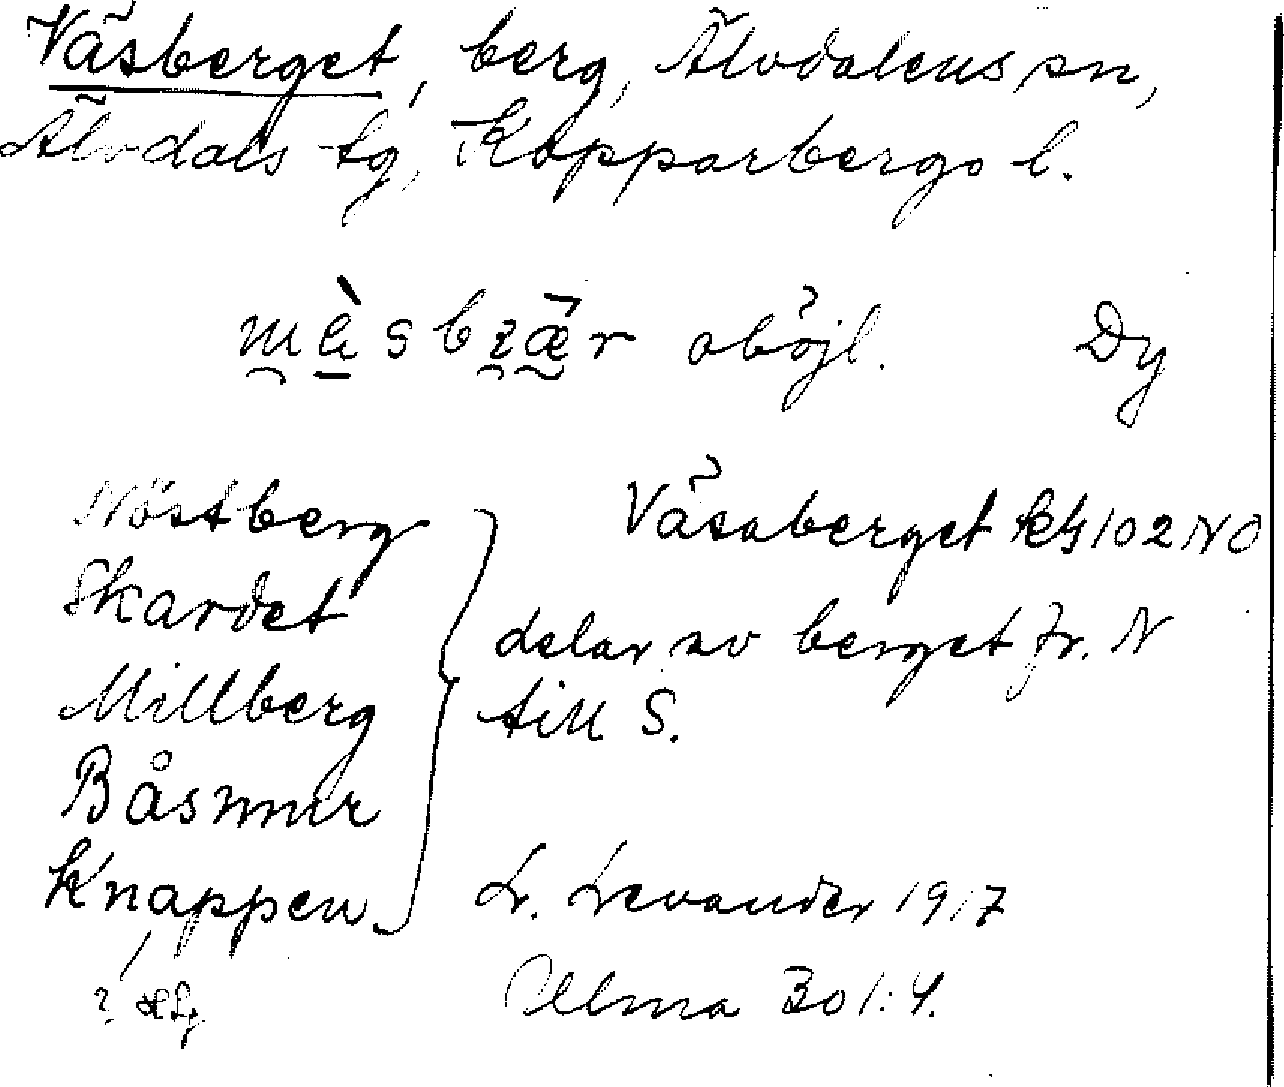 Väsberget, berg, Älvdalens sn,
Älvdals tg, Kopparbergs l.
oböjl. Dy
Nöstberg
Skardet
Millberg
Båsmur
Knappen
Väsaberget k4102NO
delar av berget fr. N
till S.
L. Levander 1917
Ulma 301:4.